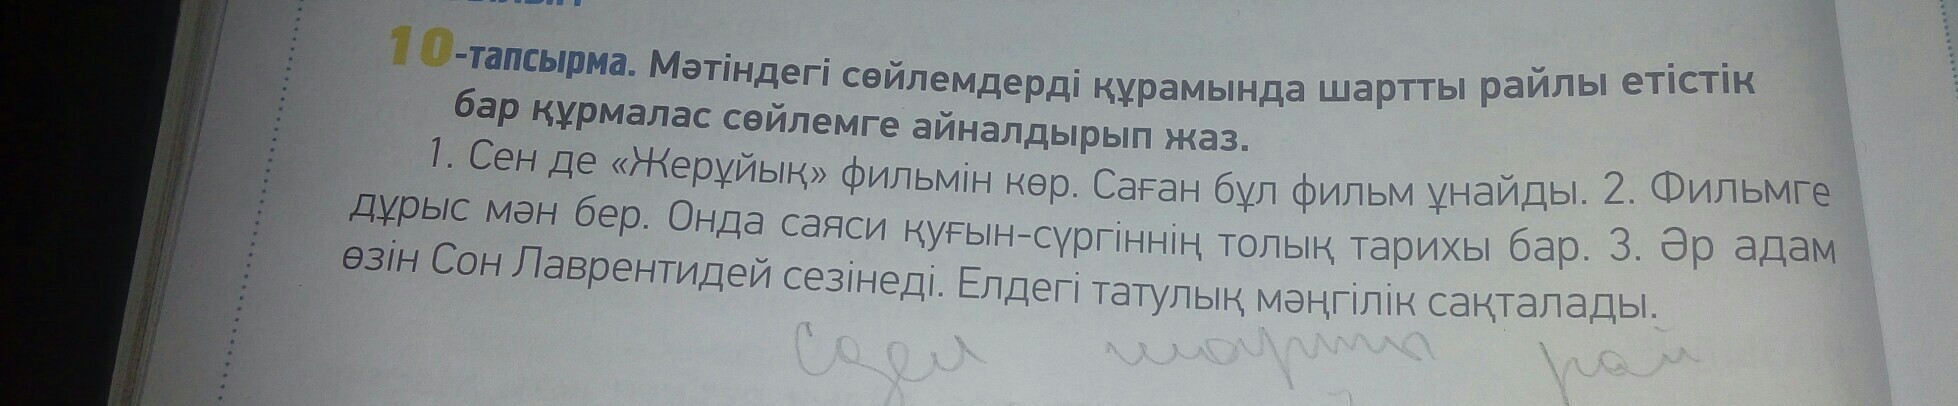 10-тапсырма. Мәтіндегі сөйлемдерді құрамында шартты райлы етістік
бар құрмалас сөйлемге айналдырып жаз.
1. Сен де «Жерұйық» фильмін көр. Саған бұл фильм ұнайды. 2. Фильмге
дұрыс мән бер. Онда саяси қуғын-сүргіннің толық тарихы бар. 3. Әр адам
өзін Сон Лаврентидей сезінеді. Елдегі татулық мәңгілік сақталады.
рай